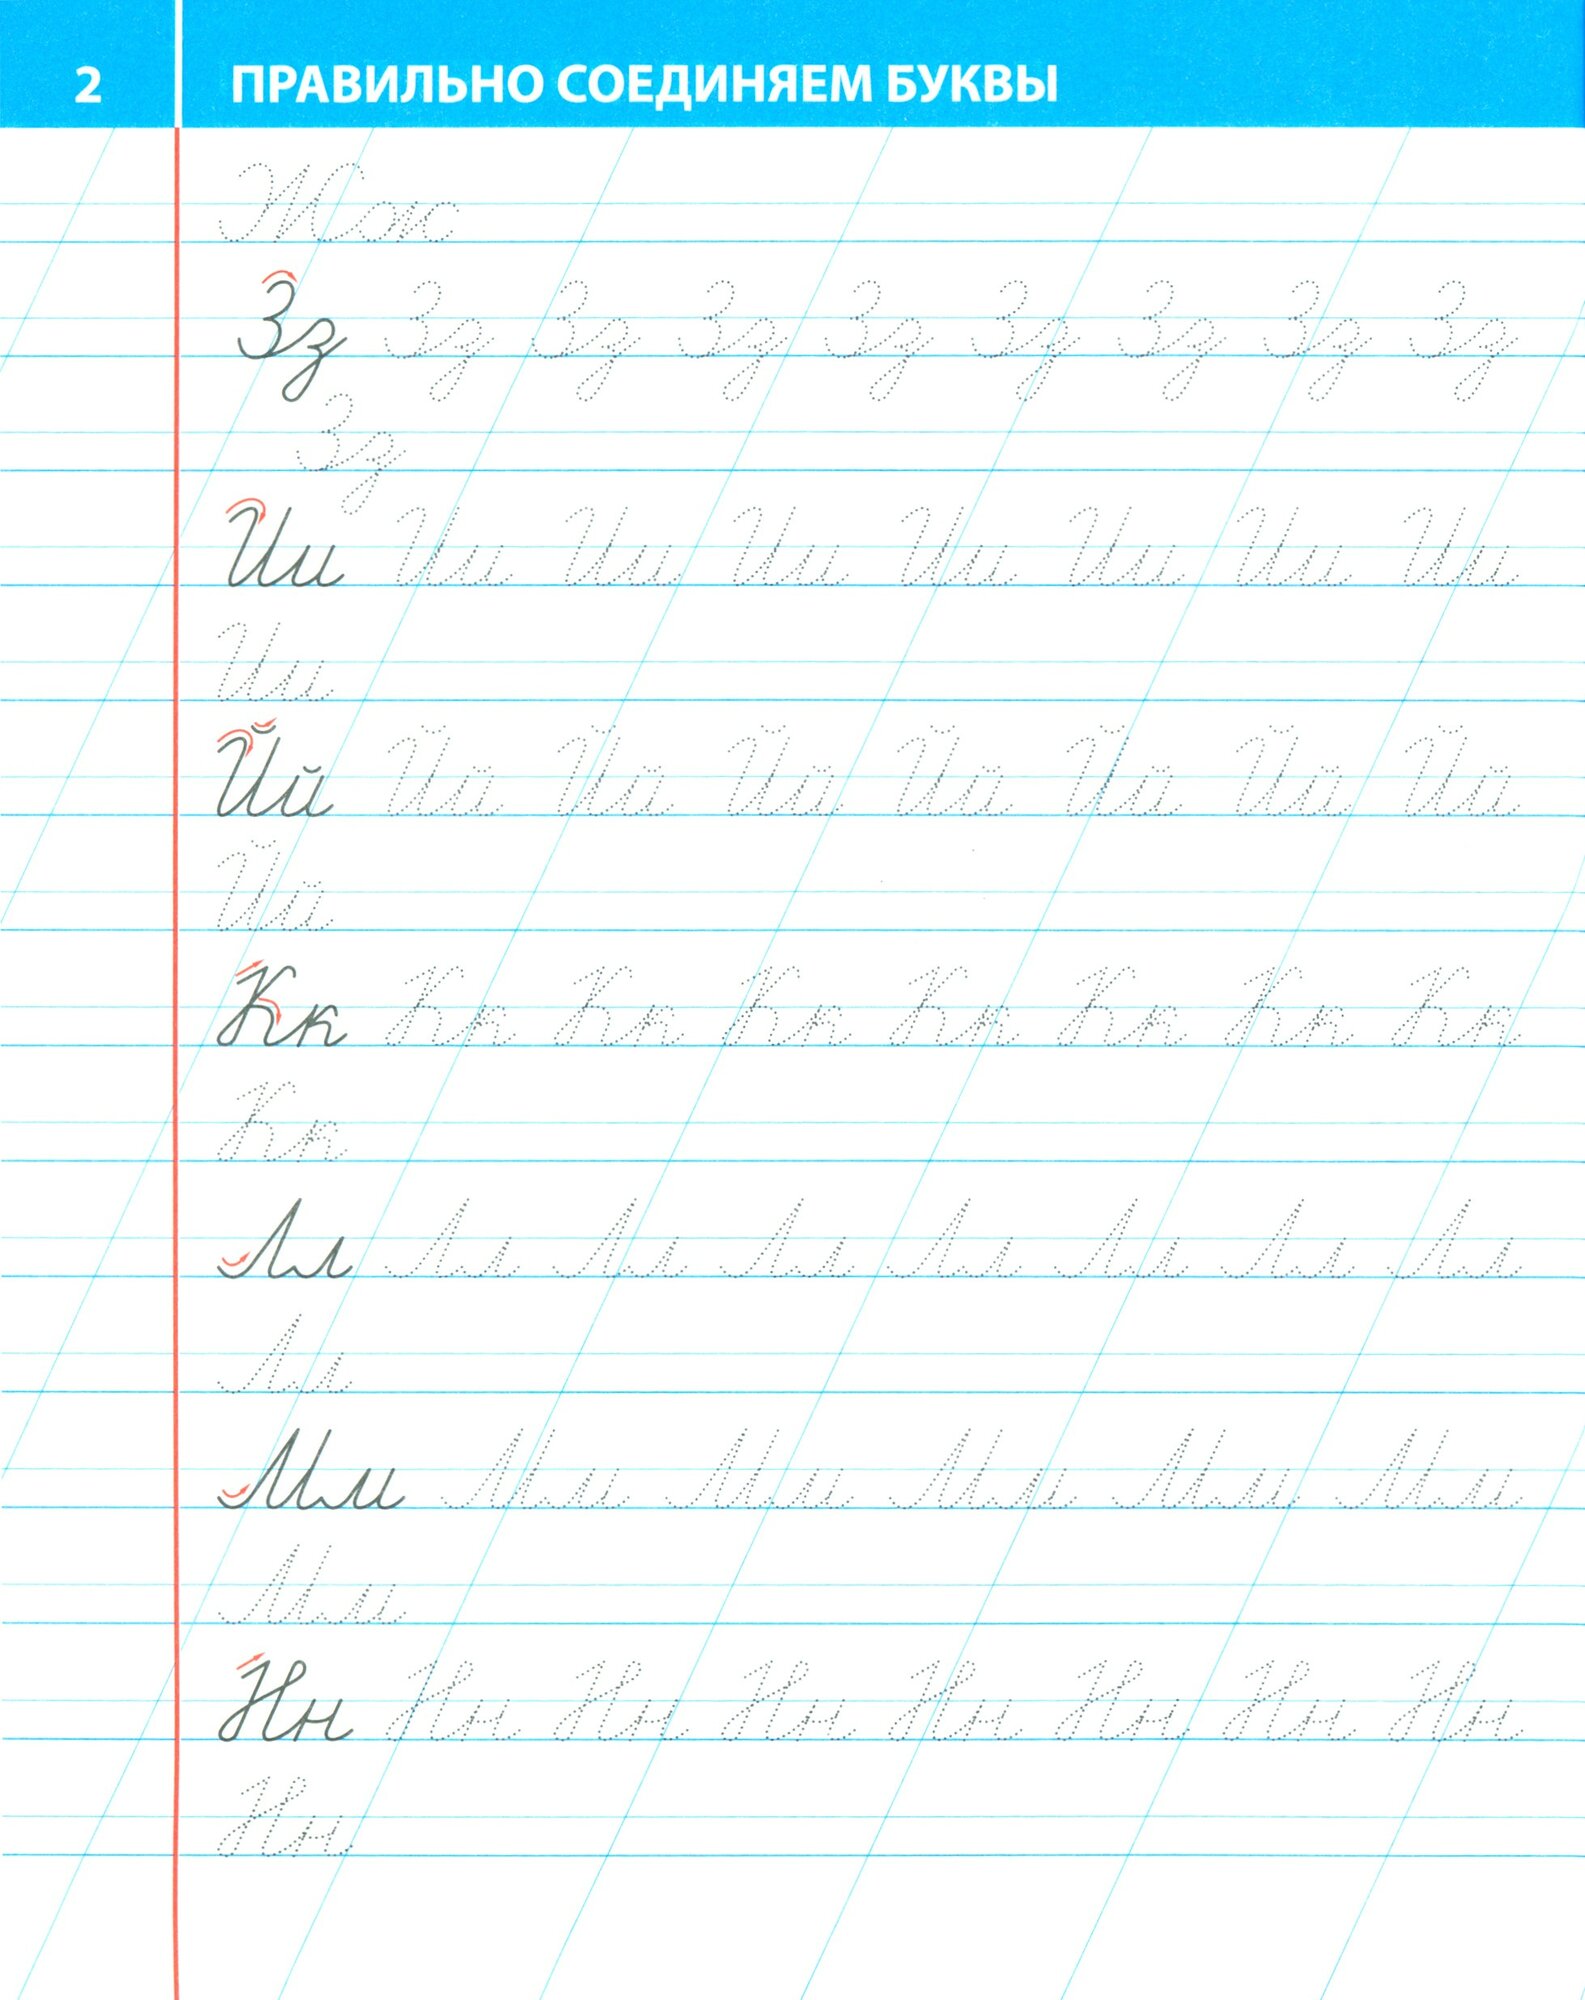 2 ПРАВИЛЬНО СОЕДИНЯЕМ БУКВЫ
Жж
Зз Зз Зз Зз Зз Зз Зз Зз Зз
Зз
Ии Ии Ии Ии Ии Ии Ии Ии
Ии
Йй Йй Йй Йй Йй Йй Йй Йй
Йй
Кк Кк Кк Кк Кк Кк Кк Кк
Кк
Лл Лл Лл Лл Лл Лл Лл Лл
Лл
Мм Мм Мм Мм Мм Мм
Мм
Нн Нн Нн Нн Нн Нн Нн Нн
Нн